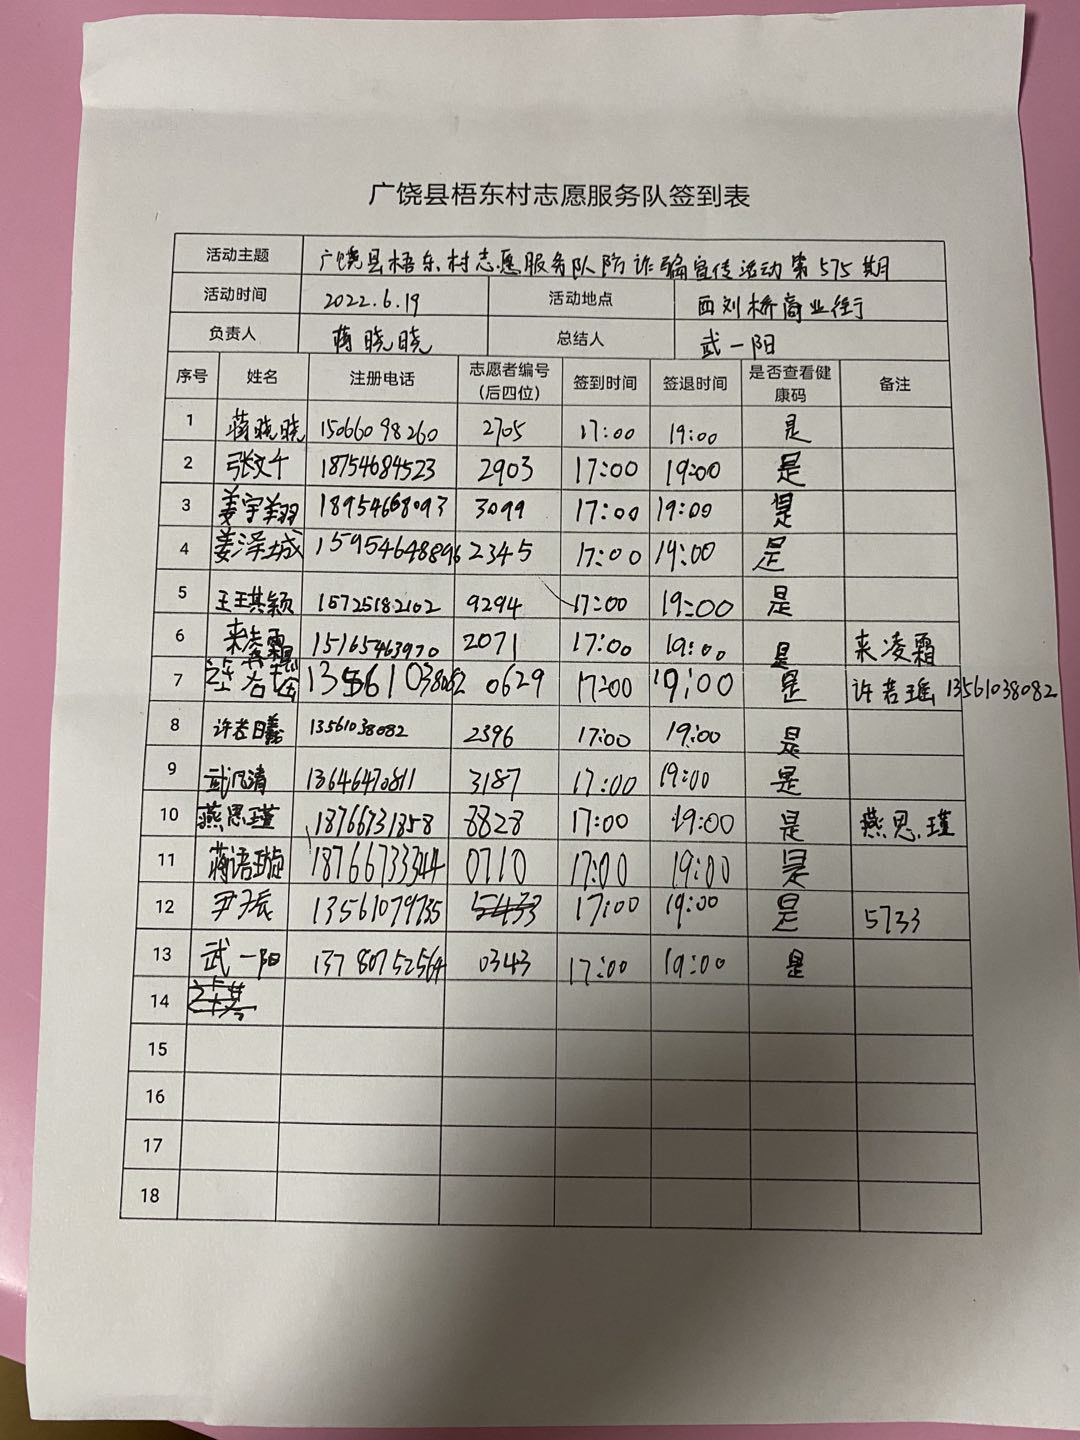 广饶县梧东村志愿服务队签到表
活动主题 广饶县梧东村志愿服务队防诈骗宣传活动第575期
活动时间 2022.6.19 活动地点 西刘桥商业街
负责人 蒋晓晓 总结人 武一阳
序号 姓名 注册电话 志愿者编号（后四位） 签到时间 签退时间 是否查看健康码 备注
1 蒋晓晓 15066098260 2705 17:00 19:00 是
2 张文个 18754684523 2903 17:00 19:00 是
3 姜宇翔 18954668093 3099 17:00 19:00 是
4 姜泽城 15954648896 2345 17:00 19:00 是
5 王琪颖 15725182102 9294 17:00 19:00 是
6 来凌霜 15165463970 2071 17:00 19:00 是 来凌霜
7 许若瑶 13561038082 0629 17:00 19:00 是 许若瑶 13561038082
8 许若曦 13561038082 2396 17:00 19:00 是
9 武汎清 13646470811 3187 17:00 19:00 是
10 燕思瑾 18766731858 8828 17:00 19:00 是 燕思瑾
11 蒋语璇 18766733344 0710 17:00 19:00 是
12 尹子辰 13561079735 5433 17:00 19:00 是 5733
13 武一阳 13780752564 0343 17:00 19:00 是
14
15
16
17
18